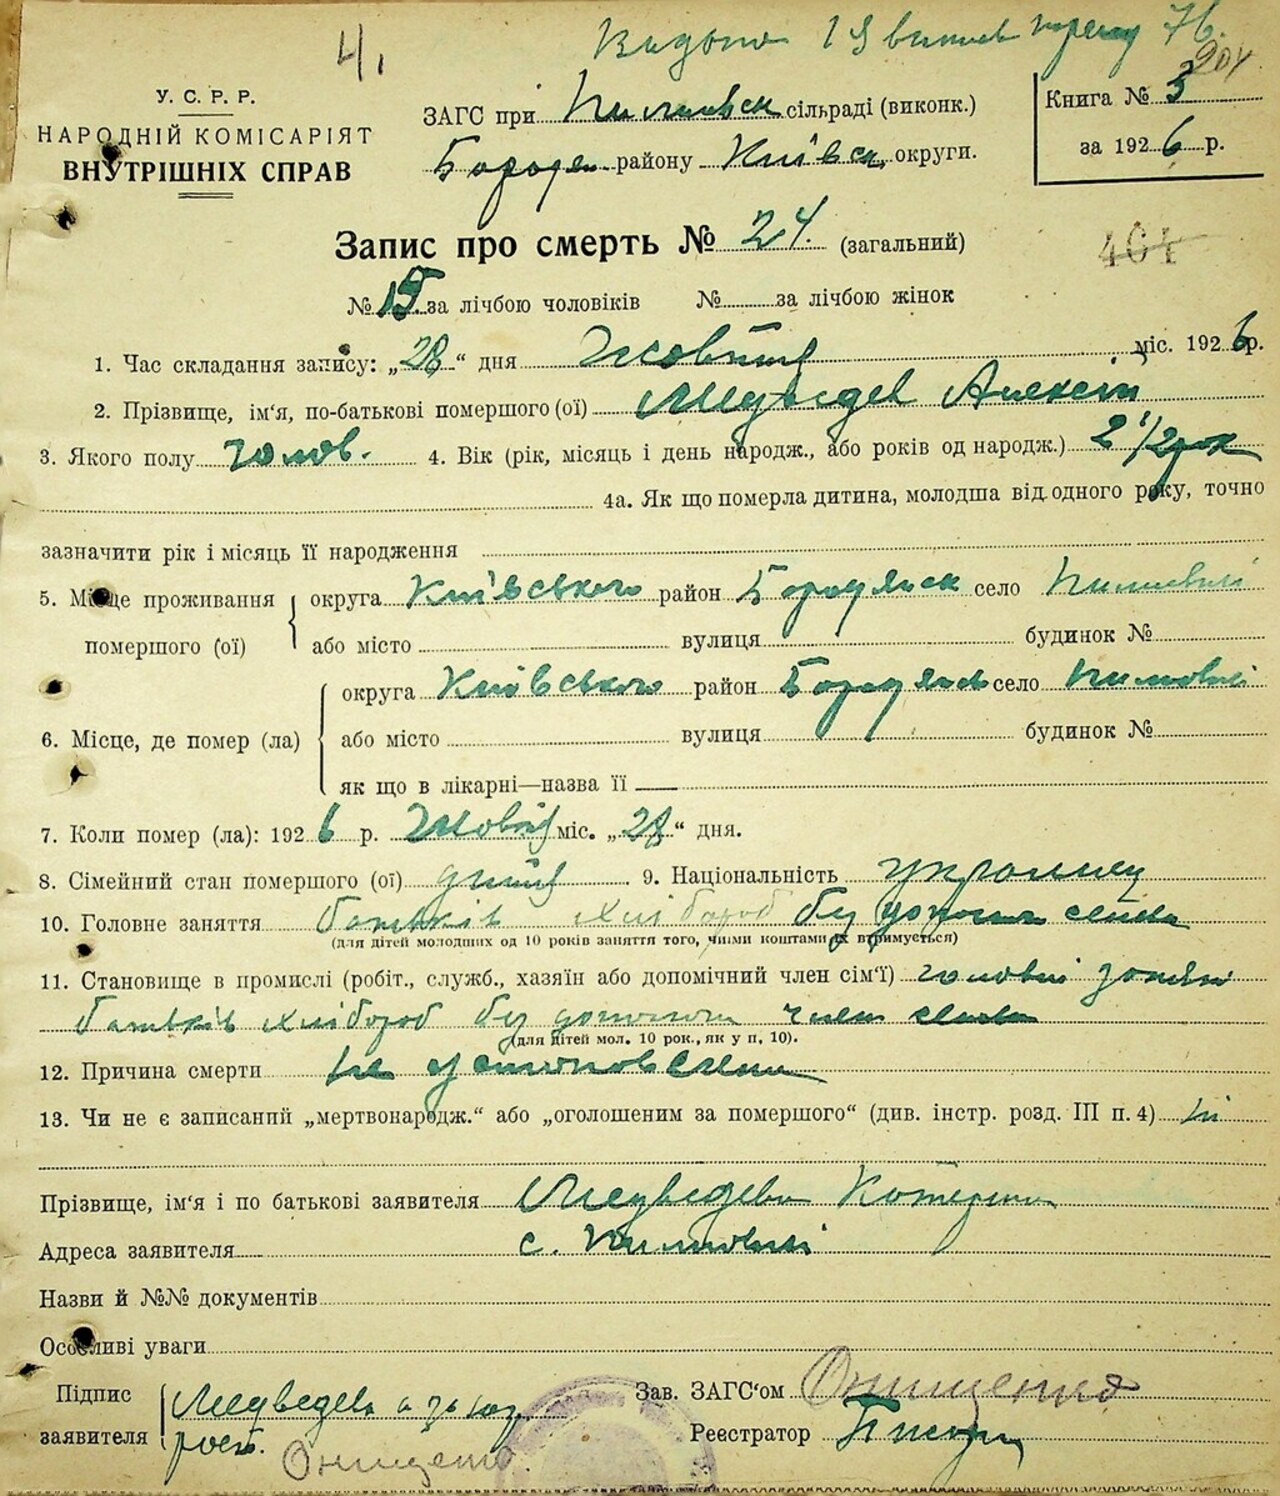 4/1
Видано 19 випис
204
У. С. Р. Р.
НАРОДНІЙ КОМІСАРІЯТ
ВНУТРІШНІХ СПРАВ
ЗАГС при сільраді (виконк.)
Бородян. району Київськ. округи.
Книга № 3
за 1926 р.
Запис про смерть № 24. (загальний)
464
№ 15. за лічбою чоловіків № за лічбою жінок
1. Час складання запису: „28“ дня Жовтня міс. 1926 р.
2. Прізвище, ім'я, по-батькові помершого (ої) Медведев Алексій
3. Якого полу чолов. 4. Вік (рік, місяць і день народж., або років од народж.) 2 1/2 рок
4а. Як що померла дитина, молодша від одного року, точно
зазначити рік і місяць її народження
5. Місце проживання помершого (ої)
округа Київського район Бородянськ село
або місто вулиця будинок №
6. Місце, де помер (ла)
округа Київського район Бородянськ село
або місто вулиця будинок №
як що в лікарні—назва її
7. Коли помер (ла): 1926 р. Жовтня міс. „28“ дня.
8. Сімейний стан помершого (ої) дитина 9. Національність українец
10. Головне заняття батьків хлібороб без допомоги
(для дітей молодших од 10 років заняття того, чиїми коштами їх втримується)
11. Становище в промислі (робіт., служб., хазяїн або допомічний член сім'ї) головні
батьків хлібороб без допомоги член
(для дітей мол. 10 рок., як у п. 10).
12. Причина смерти не установлена
13. Чи не є записаний „мертвонародж.“ або „оголошеним за помершого“ (див. інстр. розд. III п. 4) ні
Прізвище, ім'я і по батькові заявителя Медведева Катерина
Адреса заявителя с.
Назви й №№ документів
Особливі уваги
Підпис заявителя Медведева а за
Онищенко
Зав. ЗАГС'ом Онищенко
Реєстратор